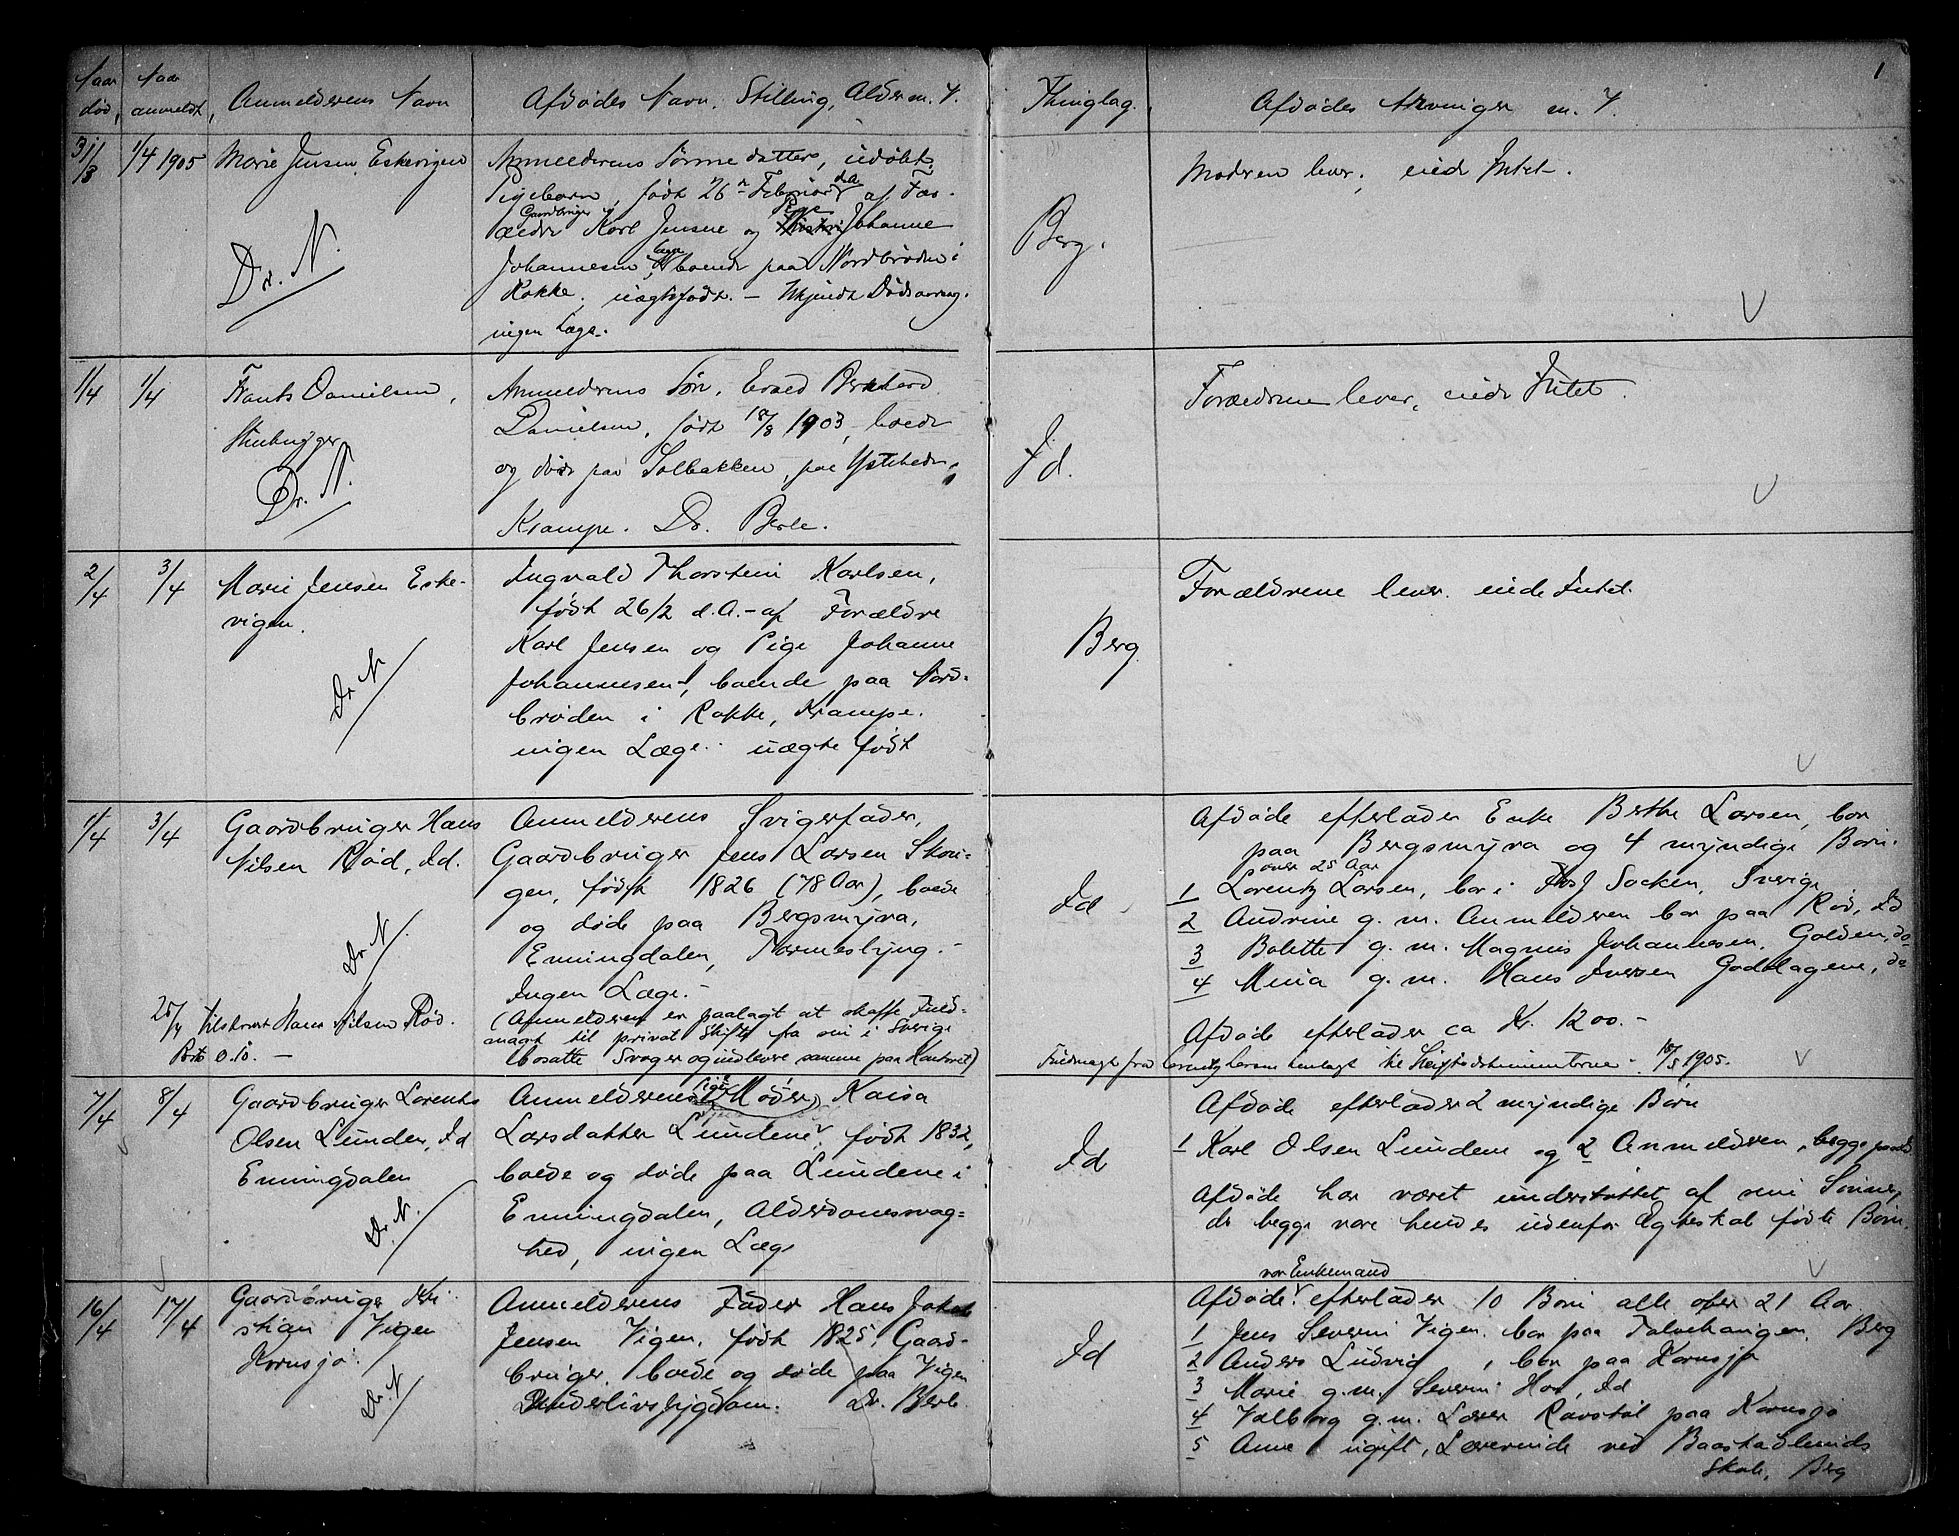 1
Naar død, Naar anmeldt, Anmelderens Navn Afdødes Navn, Stilling, Alder m. V. Thinglag. Afdødes Arvinger m. V.
31/3 1/4 1905 Marie Jensen, Eskevigen
Dr. N.
Anmelderens Sønne datter, udøbt
Pigebarn, født 26 Februar d.a. af For-
ældre Gaardbruger Karl Jensen og Pige Johanne
Johannesen, boende paa Nordbrøden i
Rokke, uægtefødt. – Ukjendt Dødsaarsag.
ingen Læge.
Berg.
Moderen lever, eiede Intet.
1/4 1/4 Frants Danielsen,
Dr. N.
Anmelderens Søn, Bernhard
Danielsen, født 18/8 1903, boede
og døde paa Solbakken, paa Ystehede.
Krampe. Dr. Berle.
Id.
Forældrene lever, eiede Intet.
2/4 3/4 Marie Jensen Eske-
vigen.
Dr. N
Ingvald Thorstein Karlsen,
født 26/2 d.A. – af Forældre
Karl Jensen og Pige Johanne
Johannesen, boende paa Nord-
brøden i Rokke, Krampe.
ingen Læge. uægte født
Berg
Forældrene lever, eiede Intet.
1/4 3/4 Gaardbruger Hans
Nilsen Rød, Id.
Dr. N.
Anmelderens Svigerfader,
Gaardbruger Jens Larsen
gen, født 1826 (78 Aar), boede
og døde paa Bergsmyra,
Enningdalen,
Ingen Læge. –
(Anmelderen er paalagt at skaffe Fuld-
magt til privat Skifte fra sin i Sverige
bosatte Svoger og indlevere samme paa Kontoret)
25/4 Tilskrevet Hans Nilsen Rød.
Porto 0.10. –
Id
Afdøde efterlader Enke Berthe Larsen, bor
paa Bergsmyra og 4 myndige Børn.
over 25 Aar
1 Lorentz Larsen, bor i Socken, Sverige
2 Andrine g. m. Anmelderen bor paa Rød, Id
3 Bolette g. m. Magnus Johannesen, do
4 Mina g. m. Hans Iversen do
Afdøde efterlader ca Kr. 1200. –
Fuldmagt fra Lorentz Larsen henlagt til Skiftedokumenterne – 18/5 1905.
7/4 8/4 Gaardbruger Lorents
Olsen Lunden, Id
Enningdalen
Dr. N.
Anmelderens Pige Moder, Kaisa
Larsdatter Lundene, født 1832,
boede og døde paa Lundene i
Enningdalen, Alderdomssvag-
hed, ingen Læge
Id
Afdøde efterlader 2 myndige Børn
1 Karl Olsen Lundene og 2 Anmelderen, begge paa Id
Afdøde har været understøttet af sine Sønner,
de begge vare hendes udenfor Egteskab fødte Børn.
16/4 17/4 Gaardbruger Kri-
stian Vigen
Kornsjø.
Dr. N
Anmelderens Fader Hans Jakob
Jensen Vigen, født 1825, Gaard-
bruger, boede og døde paa Vigen
Underlivssygdom. Dr. Berle
Id
var Enkemand
Afdøde efterlader 10 Børn alle over 21 Aar
1 Jens Severin Vigen, bor paa Berg
2 Anders Ludvig, bor paa Kornsjø
3 Marie g. m. Severin Hov, Id
4 Valborg g. m. Lærer Ravstøl paa Kornsjø
5 Anne ugift, Lærerinde ved Baastadlunds
Skole, Berg